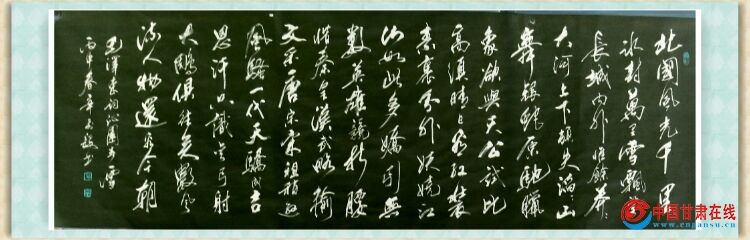 北國風光千里
冰封萬里雪飄
長城內外惟餘莽々
大河上下頓失滔々山
舞銀蛇原馳臘
象欲與天公試比
高須晴日看紅裝
素裹分外妖嬈江
山如此多嬌引無
數英雄競折腰
惜秦皇漢武略輸
文采唐宗宋祖稍遜
風騷一代天驕成吉
思汗只識彎弓射
大鵰俱往矣數風
流人物還看今朝
毛澤東詞沁園春雪
丙申春辛文書
中国甘肃在线
www.cngansu.cn